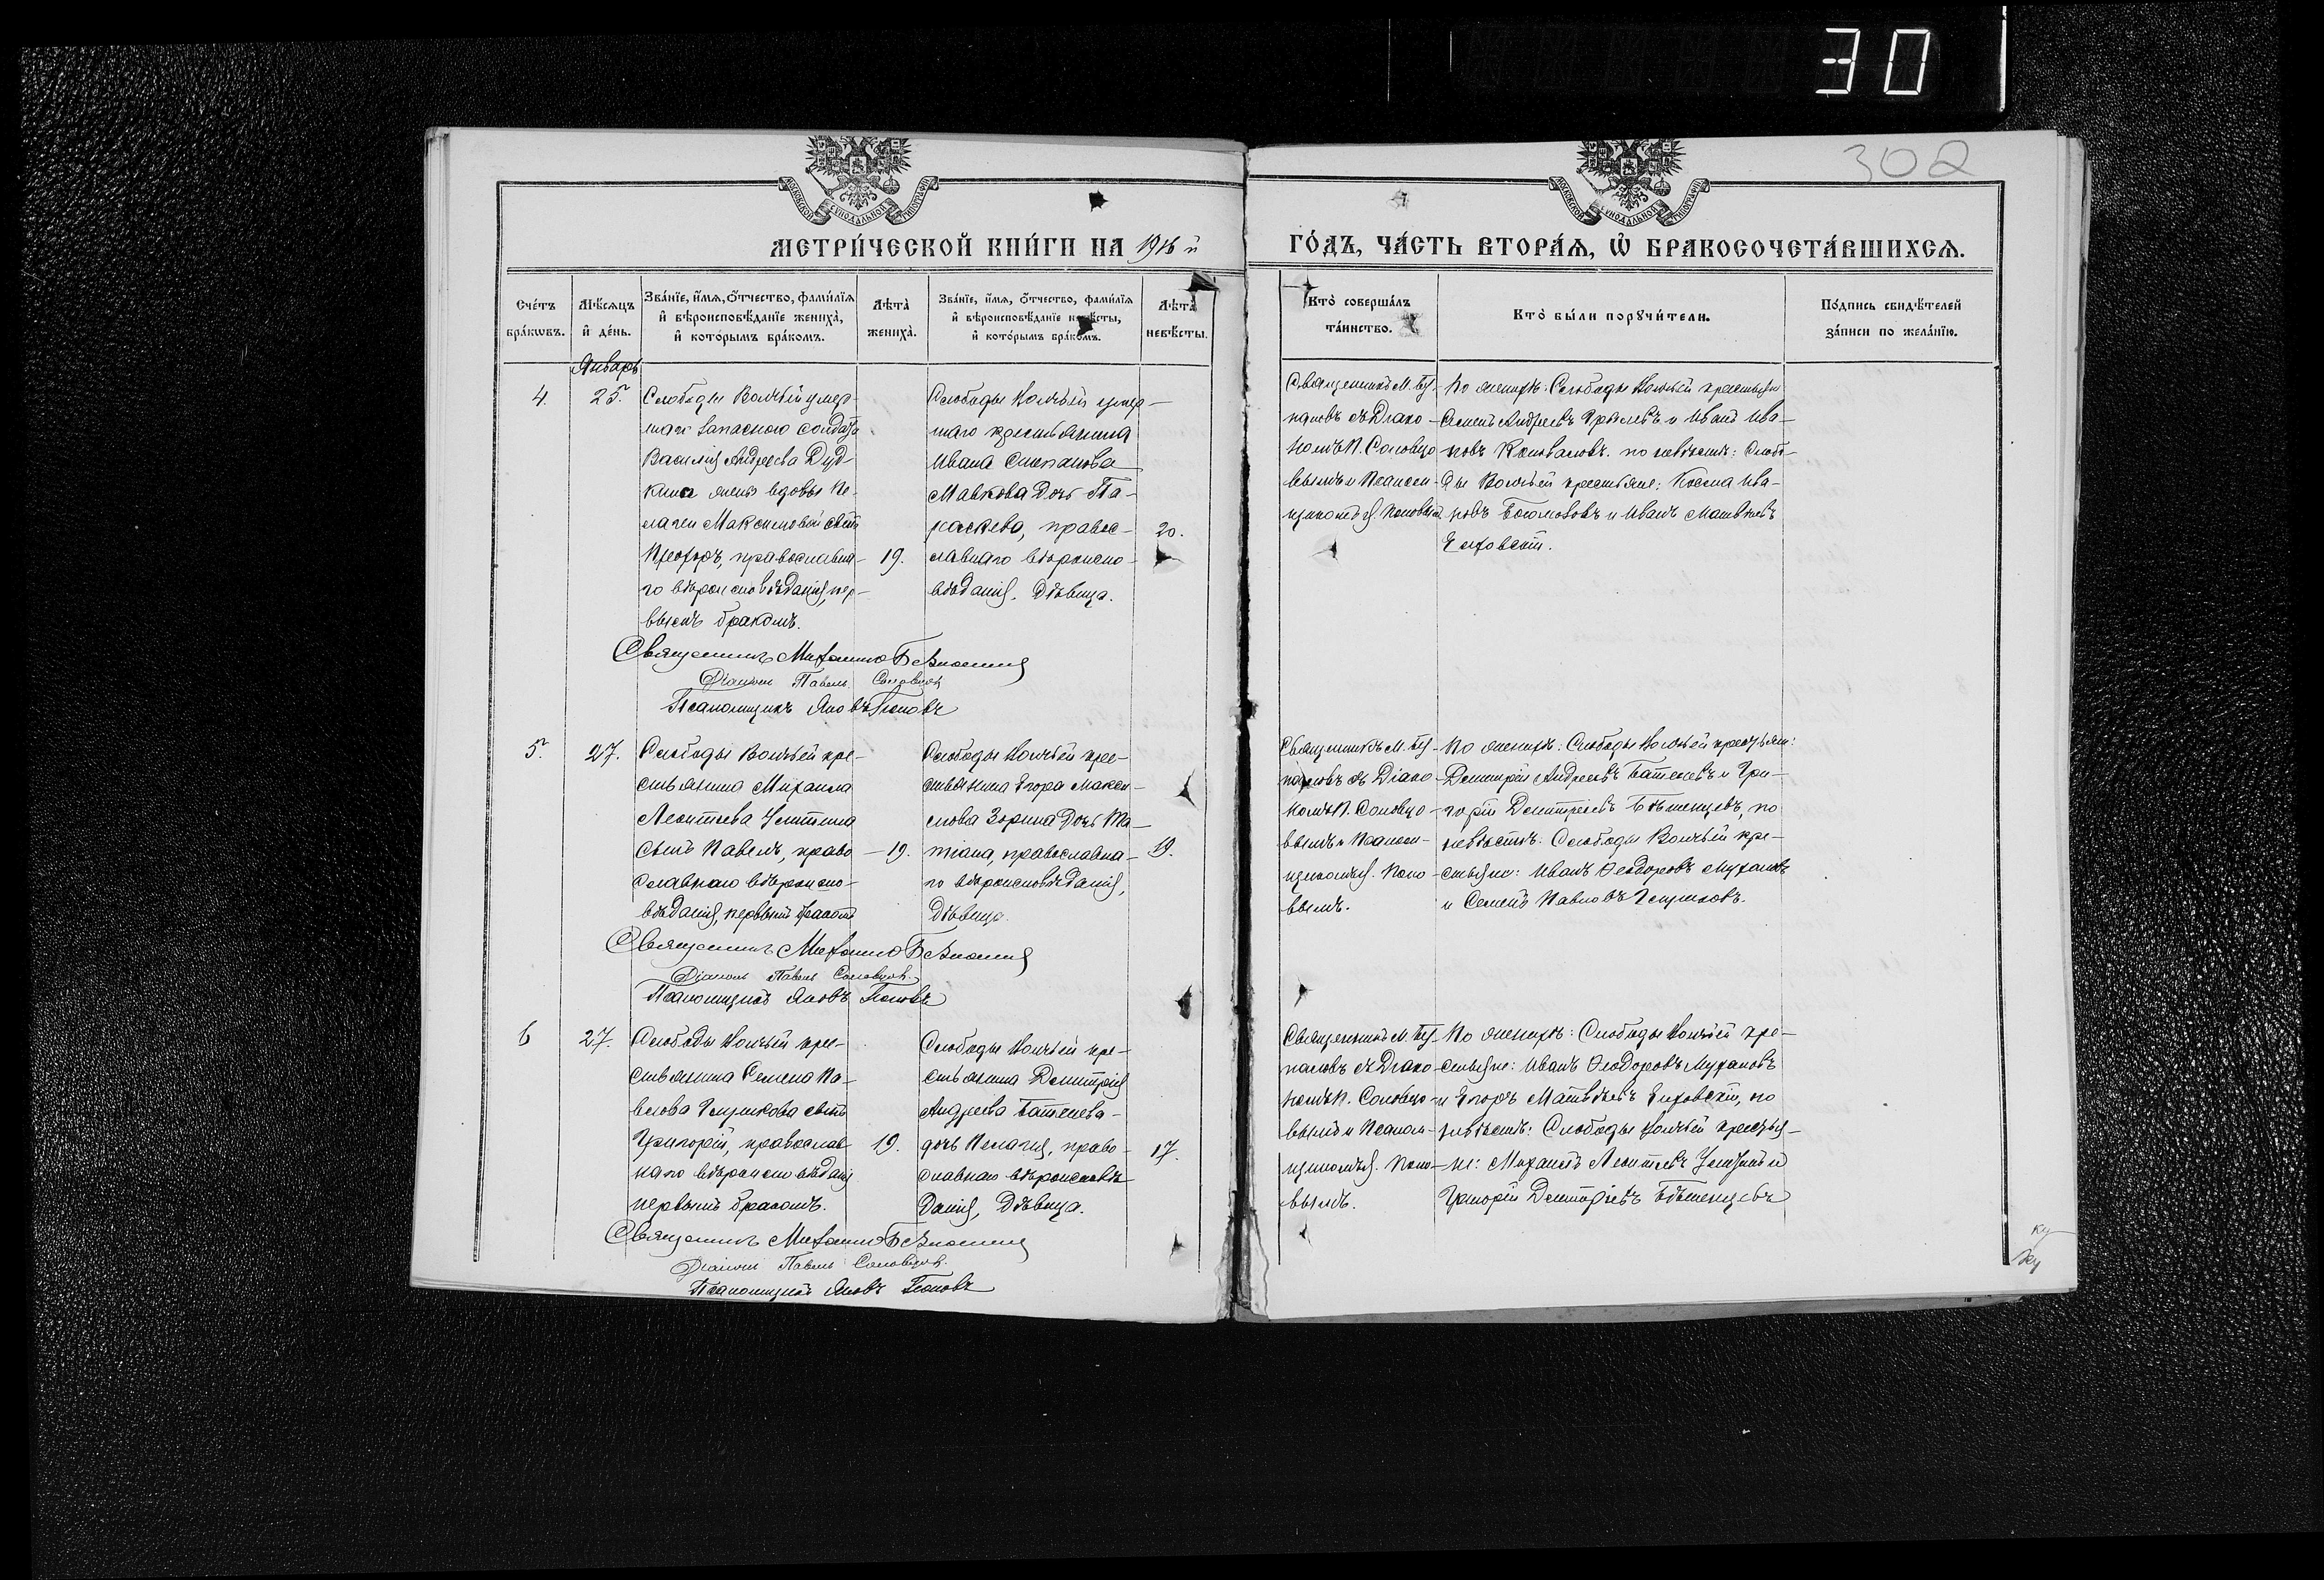 30
302
МЕТРИ́ЧЕСКОЙ КНИ́ГИ НА 1916 й
ГО́ДЪ, ЧА́СТЬ ВТОРА́Я, Ѡ БРАКОСОЧЕТА́ВШИХСЯ.
Сче́тъ бра́кωвъ.
Мѣ́сяцъ и҆ де́нь.
Зва́нїе, и҆́мя, о҆́тчество, фами́лїя и҆ вѣроисповѣ́данїе жениха̀, и҆ кото́рымъ бра́комъ.
Лѣта̀ жениха̀.
Зва́нїе, и҆́мя, о҆́тчество, фами́лїя и҆ вѣроисповѣ́данїе невѣ́сты, и҆ кото́рымъ бра́комъ.
Лѣта̀ невѣ́сты.
Кто̀ соверша́лъ та́инство.
Кто̀ бы́ли порꙋчи́тели.
По́дпись свидѣ́телей за́писи по жела́нїю.
Январь
4.
25.
Слободы Волчьей умер-
шаго запаснаго солдата
Василія Андреева Дуд-
кина жены вдовы Пе-
лагеи Максимовой сынъ
православна-
го вѣроисповѣданія, пер-
вымъ бракомъ.
19.
Слободы Волчьей умер-
шаго крестьянина
Ивана Степанова
Мавкова дочь Па-
раскева, правос-
лавнаго вѣроиспо-
вѣданія, дѣвица.
20.
Священникъ М.
съ Діако-
номъ П. Соловцо-
вымъ и Псалом-
щикомъ Я. Поповымъ
По женихѣ: Слободы Волчьей крестьяне
Семенъ Андреевъ и Иванъ Ива-
новъ Коноваловъ. по невѣстѣ: Слобо-
ды Волчьей крестьяне: Косма Ива-
новъ Богомоловъ и Иванъ Матвѣевъ
Священникъ Михаилъ
Діаконъ Павелъ Соловцовъ
Псаломщикъ Яковъ Поповъ
5.
27.
Слободы Волчьей кре-
стьянина Михаила
Леонтьева
сынъ Павелъ, право-
славнаго вѣроиспо-
вѣданія, первымъ бракомъ
19.
Слободы Волчьей кре-
стьянина Егора Макси-
мова Зорина дочь Та-
тіана, православна-
го вѣроисповѣданія,
дѣвица.
19.
Священникъ М.
съ Діако-
номъ П. Соловцо-
вымъ и Псалом-
щикомъ Я. Попо-
вымъ.
По женихѣ: Слободы Волчьей крестьяне:
Димитрій Андреевъ Батеневъ и Гри-
горій Димитріевъ Бѣженцевъ, по
невѣстѣ: Слободы Волчьей кре-
стьяне: Иванъ Ѳеодоровъ Мухановъ
и Семенъ Павловъ
Священникъ Михаилъ
Діаконъ Павелъ Соловцовъ.
Псаломщикъ Яковъ Поповъ
6
27.
Слободы Волчьей кре-
стьянина Семена Па-
влова сынъ
Григорій, православ-
наго вѣроисповѣданія
первымъ бракомъ.
19.
Слободы Волчьей кре-
стьянина Димитрія
Андреева Батенева
дочь Пелагія, право-
славнаго вѣроисповѣ-
данія, дѣвица.
17.
Священникъ М.
съ Діако-
номъ П. Соловцо-
вымъ и Псалом-
щикомъ Я. Попо-
вымъ.
По женихѣ: Слободы Волчьей кре-
стьяне: Иванъ Ѳеодоровъ Мухановъ
и Егоръ Матвѣевъ по
невѣстѣ: Слободы Волчьей крестья-
не: Михаилъ Леонтьевъ и
Григорій Димитріевъ Бѣженцевъ
Священникъ Михаилъ
Діаконъ Павелъ Соловцовъ.
Псаломщикъ Яковъ Поповъ